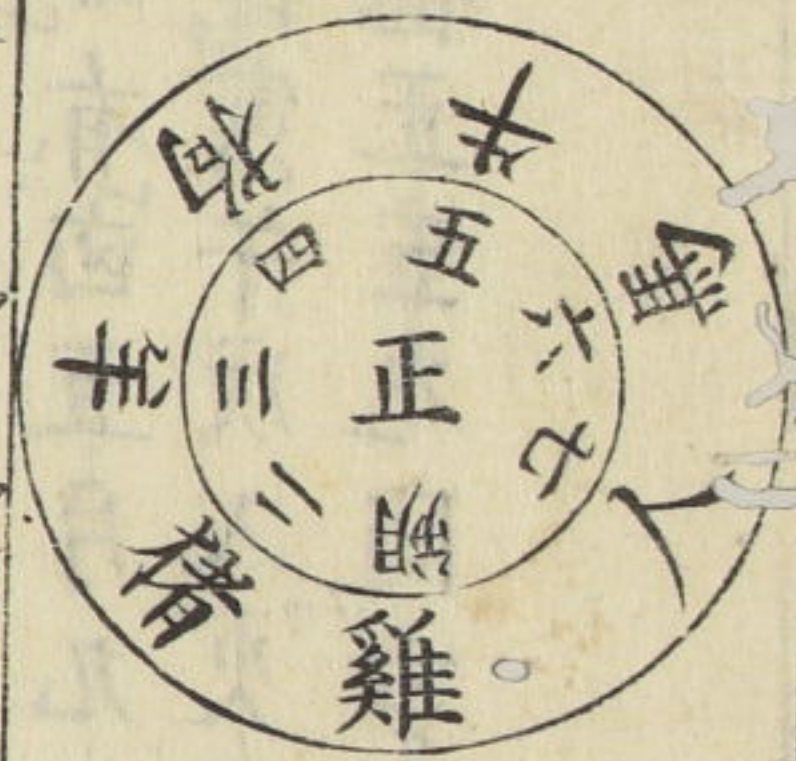 正
朔 二 三 四 五 六 七
雞 猪 羊 狗 牛 人